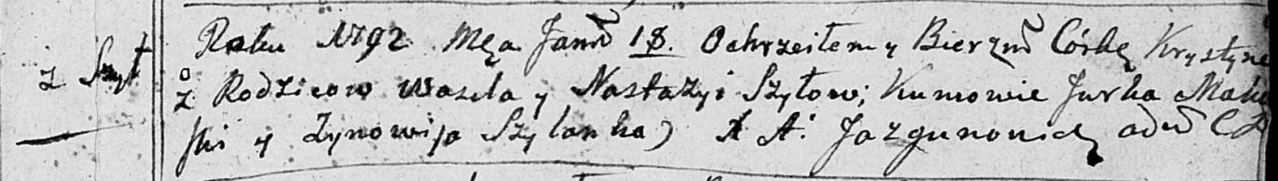 Roku 1792 Mca Janu 18. Ochrzciłem y Bierzm Córkę Krystynę
z Szyt
z Rodzicow Wasila y Nastazyi Szyłow; Kumowie Jurka
ski y Zynowija Szylanka) X A: Jazgunowicz